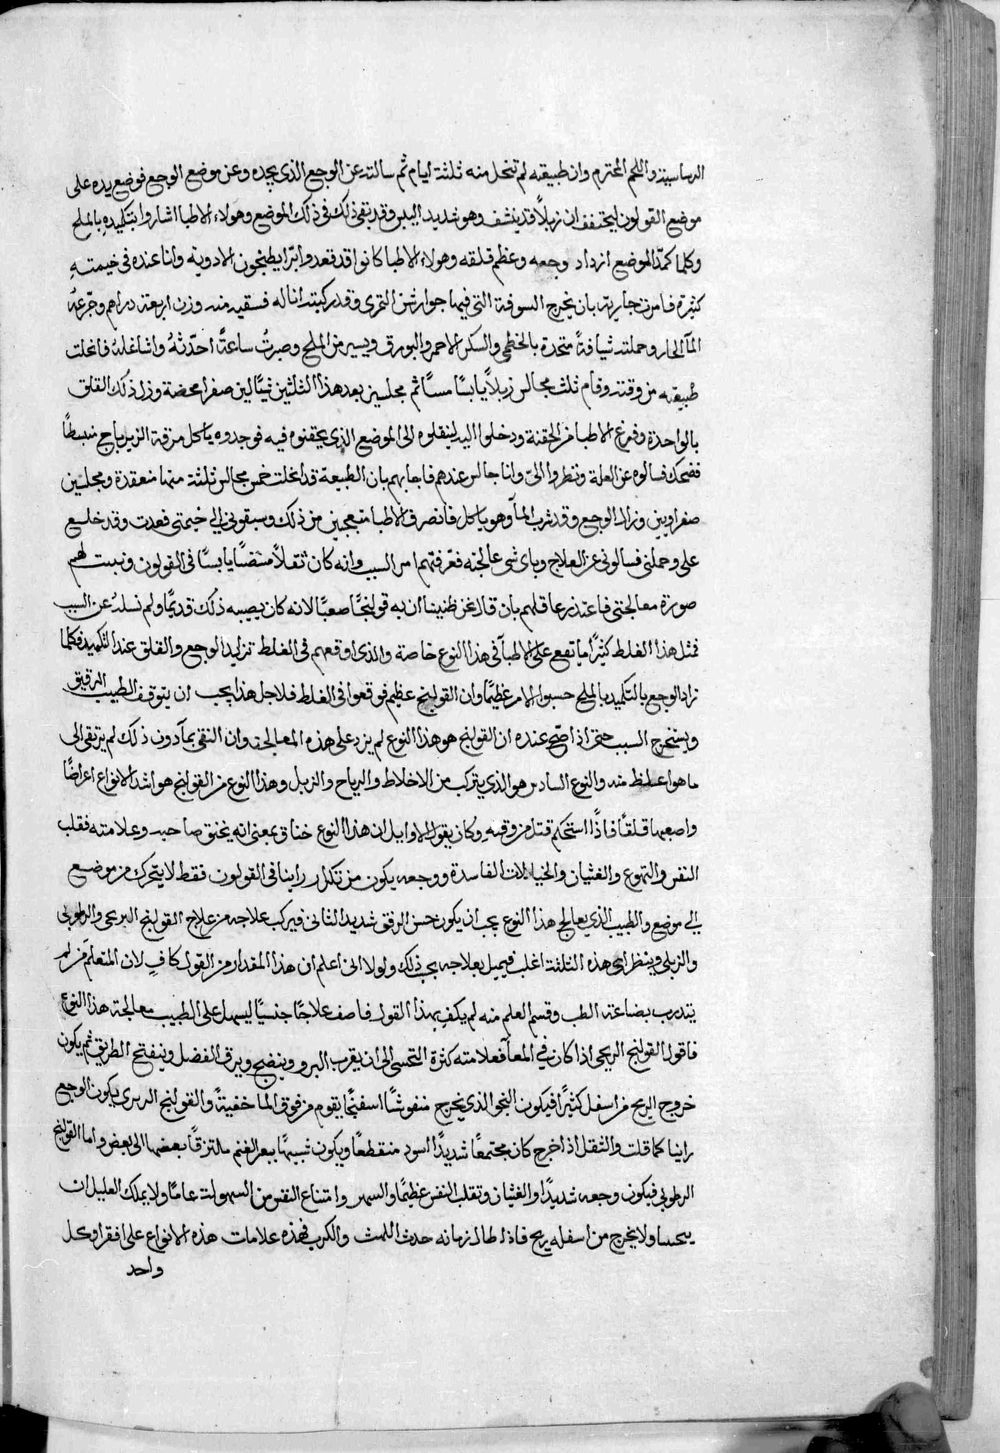 الرساسية واللحم المحترم وان طبيعته لم تنحل منه ثلثة ايام ثم سالته عن الوجع الذى يجده وعن موضع الوجع فوضع يده على
موضع القولون ليخفف ان زبلاً قد ينشف وهو شديد اليبس وقد بقى ذلك فى ذلك الموضع وهولاء الاطبا اشاروا بتكميده بالملح
وكلما كمد الموضع ازداد وجعه وعظم قلقه وهولاء الاطبا كانوا قد قعدوا برّا يطبخون الادوية وانا عنده فى خيمته
كثيرة فامرت جاريته بان يخرج السوفة التى فيها جوارشن التمرى وقد ركبته انا له فسقيه منه وزن اربعة دراهم وجرعة
المآ الحار وحملته شيافة متخذة بالخطمى والسكر الاحمر والبورق ويسير من الملح وصبرت ساعةً احدّثه واشاغله فانحلت
طبيعته من وقته وقام ثلث مجالس زبلاً يابسًا مسًّا ثم مجلسين بعد هذا الثلثين شيّالين صفرا محضة وزل ذلك القلق
بالواحدة وفرغ الاطبا من الحقنة ودخلوا اليه لينقلوه الى الموضع الذى يحقنوه فيه فوجدوه ياكل مرقة الزيرباج منبسطًا
فضحك فسالوه عن العلة ونظروا الىّ وانا جالس عندهم فاجابهم بان الطبيعة قد انحلت خمس مجالس ثلثة منها منعقدة ومجلسين
صفراويين وزال الوجع وقد شرب المآ وهو ياكل فانصرف الاطبا متعجبين من ذلك وسبقونى الى خيمتى فعدت وقد خلع
على وحملنى فسالونى عن العلاج وباى شى عالجته فعرّفتهم امر السبب وانه كان ثقلاً منتصًا يابسًا فى القولون وثبت لهم
صورة معالجتى فاعتذر عاقلهم بان قال نحن ظنينا ان به قولنجًا صعبًا لانه كان يصيبه ذلك قديمًا ولم نسله عن السبب
فمثل هذا الغلط كثيرًا ما تقع على الاطبآ فى هذا النوع خاصة والذى اوقعهم فى الغلط تزايد الوجع والقلق عند التكميد فكلما
زاد الوجع بالتكميد بالملح حسبوا الامر عظيمًا وان القولنج عظيم فوقعوا فى الغلط فلاجل هذا يجب ان يتوقف الطبيب الرقيق
ويستخرج السبب حتى اذا صح عنده ان القولنج هو هذا النوع لم يزد على هذه المعالجة وان النقى بمآ دون ذلك لم يترقى الى
ما هو اغلظ منه والنوع السادس هو الذى يتركب من الاخلاط والرياح والزبل وهذا النوع من القولنج هو اشد الانواع اعراضًا
واصعبها قلقًا فاذا استحكم قتل من وقته وكان يقول الاوايل ان هذا النوع خناق بمعنى انه يخنق صاحبه وعلامته فقلب
النفس والتهوع والغثيان والخيالات الفاسدة ووجعه يكون من تكدار راينا فى القولون فقط لا يتحرك من موضع
الى موضع والطبيب الذى يعالج هذا النوع يجب ان يكون حسن الرفق شديد التانى فيركب علاجه من علاج القولنج الريحى والرطوبى
والزبلى وينظر اى هذه الثلثة اغلب فيميل بعلاجه بحب ذلك ولولا انى اعلم ان هذا المقدار من القول كافٍ لان المتعلم من لم
يتدرب بصناعة الطب وقسم العلم منه لم يكف بهذا القول فاصف علاجًا جنسيًا ليسهل على الطبيب معالجة هذا النوع
فاقول القولنج الريحى اذا كان فى المعآ فعلامته كثرة التجسى الى ان يقرب البرو وينضج ويرق الفضل وينفتح الطريق ثم يكون
خروج الريح من اسفل كثيرًا فيكون النجو الذى يخرج منفوشًا اسفنجيًا يقوم من فوق الما خفيفةً والقولنج الزبلى يكون الوجع
راينا كما قلت والثقل اذا خرج كان مجتمعًا شديدًا اسود منقطعًا ويكون شبيهًا ببعر الغنم ملتزقًا بعضها الى بعض واما القولنج
الرطوبى فيكون وجعه شديدًا والغثيان وتقلب النفس عظيمًا والسهر وامتناع النفس من السهولة عامًا ولا يملك العليل ان
يتحسا ولا يخرج من اسفله ريح فاذا طال زمانه حدث اللهث والكرب فهذه علامات هذه الانواع على افقر اوكل
واحد